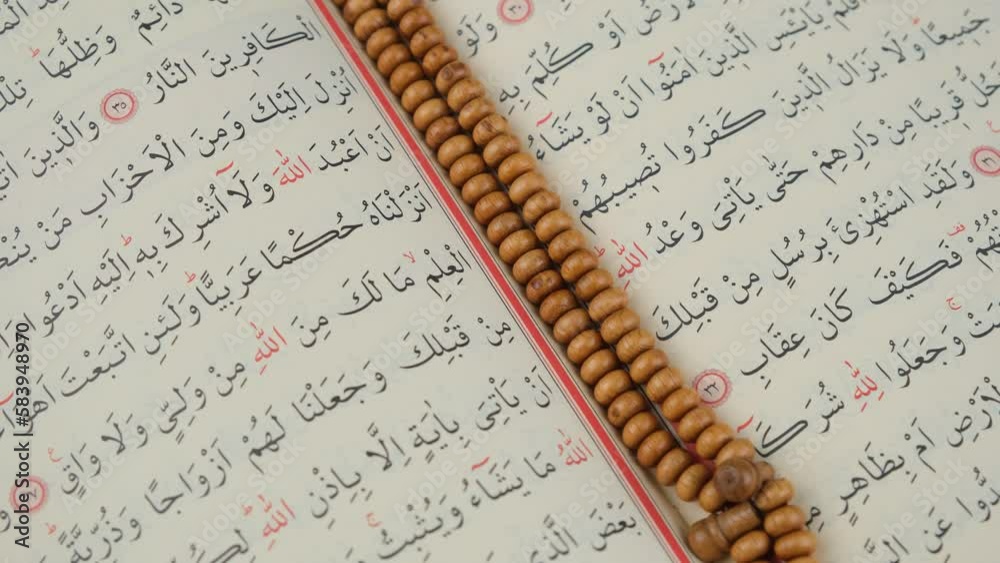 وَلَوْ
اَرْضُ اَوْ كُلِّمَ بِهِ
فَلَمْ يَايْئَسِ الَّذِينَ اٰمَنُٓوا اَنْ لَوْ يَشَٓاءُ
جَمِيعًا وَلَا يَزَالُ الَّذِينَ كَفَرُوا تُصِيبُهُمْ
حُلُّ قَرِيبًا مِنْ دَارِهِمْ حَتّٰى يَأْتِىَ وَعْدُ اللّٰهِ
٣١ وَلَقَدِ اسْتُهْزِئَ بِرُسُلٍ مِنْ قَبْلِكَ
تُهُمْ فَكَيْفَ كَانَ عِقَابِ ٣٢
وَجَعَلُوا لِلّٰهِ شُرَكَٓا
اَرْضِ اَمْ بِظَاهِرٍ
دُّوا عَنِ
دَٓائِمٌ وَظِلُّهَا تِلْكَ
الْكَافِرِينَ النَّارُ ٣٥ وَالَّذِينَ
اُنْزِلَ اِلَيْكَ وَمِنَ الْاَحْزَابِ مَنْ
اَنْ اَعْبُدَ اللّٰهَ وَلَٓا اُشْرِكَ بِهٖ اِلَيْهِ اَدْعُوا
اَنْزَلْنَاهُ حُكْمًا عَرَبِيًّا وَلَئِنِ اتَّبَعْتَ
الْعِلْمِ مَا لَكَ مِنَ اللّٰهِ مِنْ وَلِىٍّ وَلَا وَاقٍ
مِنْ قَبْلِكَ وَجَعَلْنَا لَهُمْ اَزْوَاجًا وَذُرِّيَّةً
اَنْ يَأْتِىَ بِاٰيَةٍ اِلَّا بِاِذْنِ اللّٰهِ لِكُلِّ
اللّٰهُ مَا يَشَٓاءُ وَيُثْبِتُ
بَعْضَ الَّذِى
Adobe Stock | #583948970